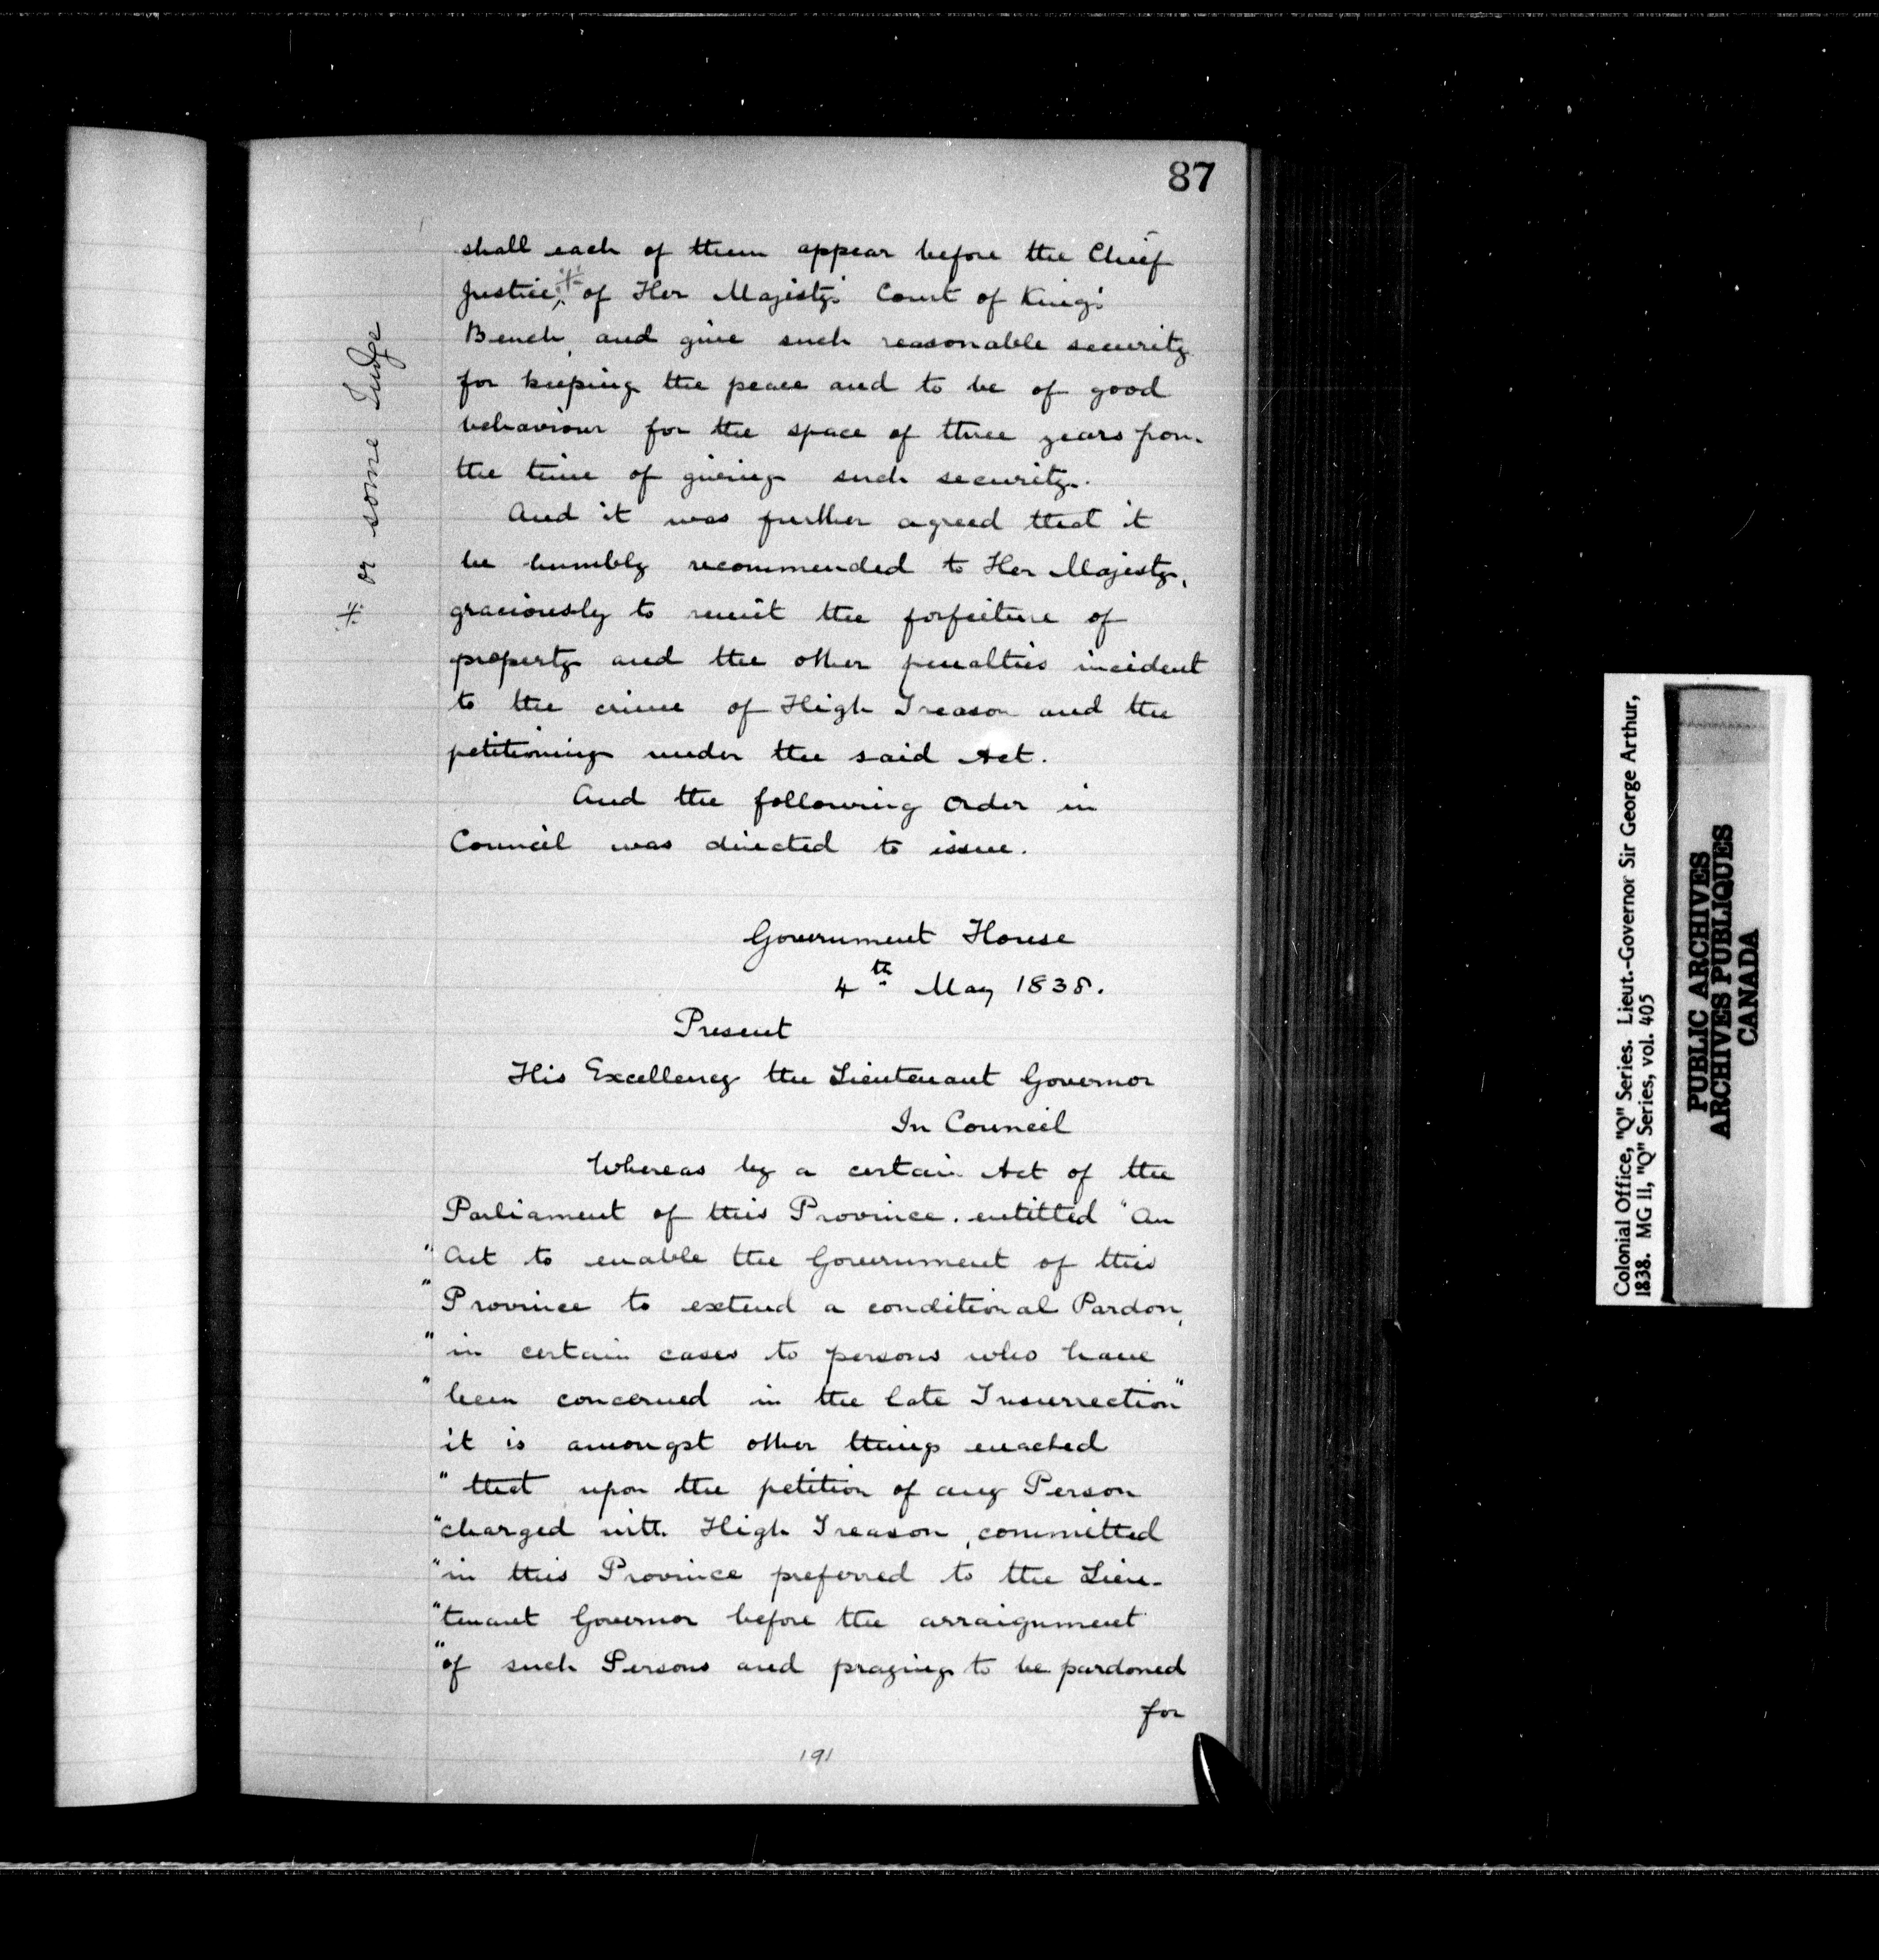 87
shall each of them appear before the Chief
Justice, ⁜ of Her Majesty's Court of King's
Bench, and give such reasonable security
for keeping the peace and to be of good
behaviour for the space of three years from
the time of giving such security.
And it was further agreed that it
be humbly recommended to Her Majesty,
graciously to remit the forfeiture of
property and the other penalties incident
to the crime of High Treason and the
petitioning under the said Act.
And the following Order in
Council was directed to issue.
⁜ or some Judge
Government House
4th May 1838.
Present
His Excellency the Lieutenant Governor
In Council
Whereas by a certain Act of the
Parliament of this Province. entitled "An
" Act to enable the Government of this
" Province to extend a conditional Pardon,
" in certain cases to persons who have
" been concerned in the late Insurrection"
it is amongst other things enacted
" that upon the petition of any Person
"charged with High Treason, committed
"in this Province preferred to the Lieu-
"tenant Governor before the arraignment
"of such Persons and praying to be pardoned
for
191
Colonial Office, "Q" Series. Lieut.-Governor Sir George Arthur,
1838. MG 11, "Q" Series, vol. 405
PUBLIC ARCHIVES
ARCHIVES PUBLIQUES
CANADA